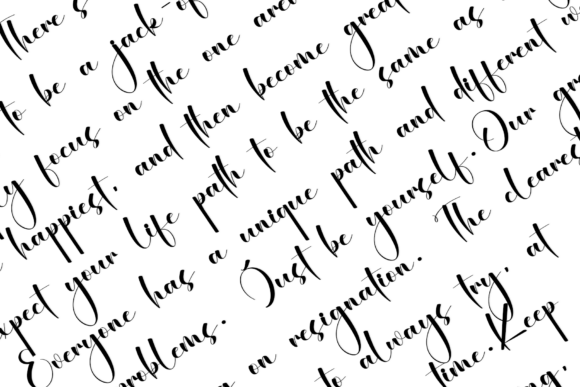 There s
to be a jack-of
ly focus on the one are
happiest, and then become grea
xpect your life path to be the same as
Everyone has a unique path and different w
problems. Just be yourself. Our gr
n on resignation. The cleares
to always try, at
time. Keep
ng,